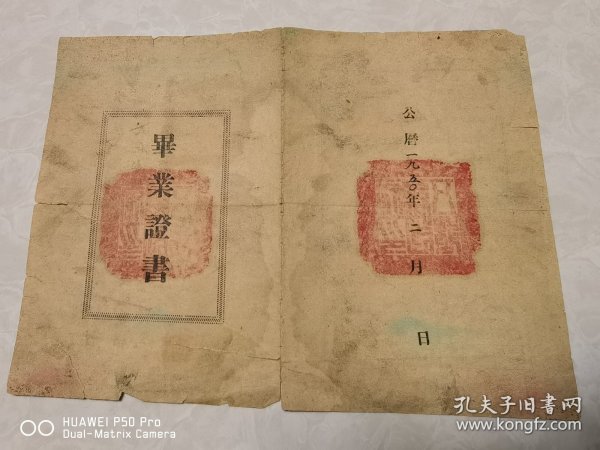 畢業證書
公曆一九五〇年二月 日
HUAWEI P50 Pro
Dual-Matrix Camera
孔夫子旧書网
www.kongfz.com